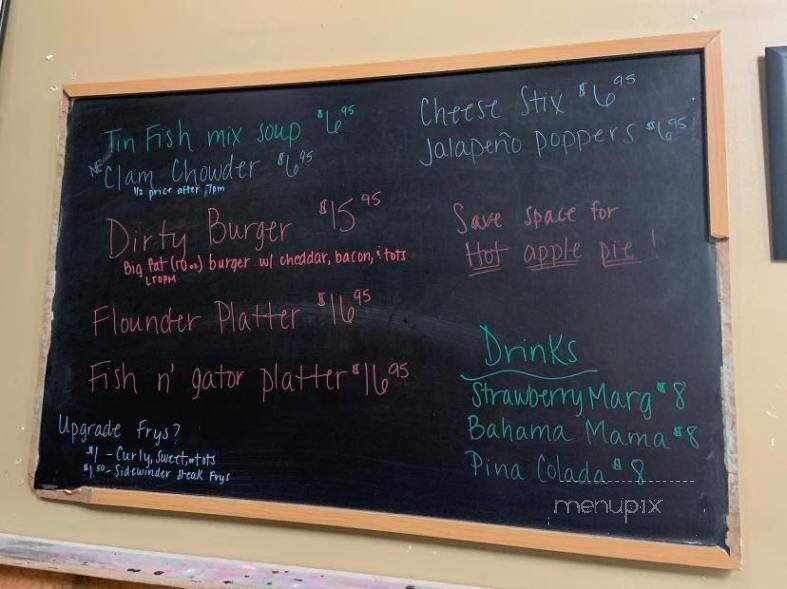 Tin Fish mix soup $6.95
NE Clam Chowder $6.95
1/2 price after 7pm
Dirty Burger $15.95
Big Fat (10oz) burger w/ cheddar, bacon, & tots
Flounder Platter $16.95
Fish n' gator platter $16.95
Upgrade Frys?
$1 - Curly, Sweet, or tots
$1.50 - Sidewinder Steak Frys
Cheese Stix $6.95
Jalapeño poppers $6.95
Save space for
Hot apple pie!
Drinks
Strawberry Marg $8
Bahama Mama $8
Pina Colada $8
menupix